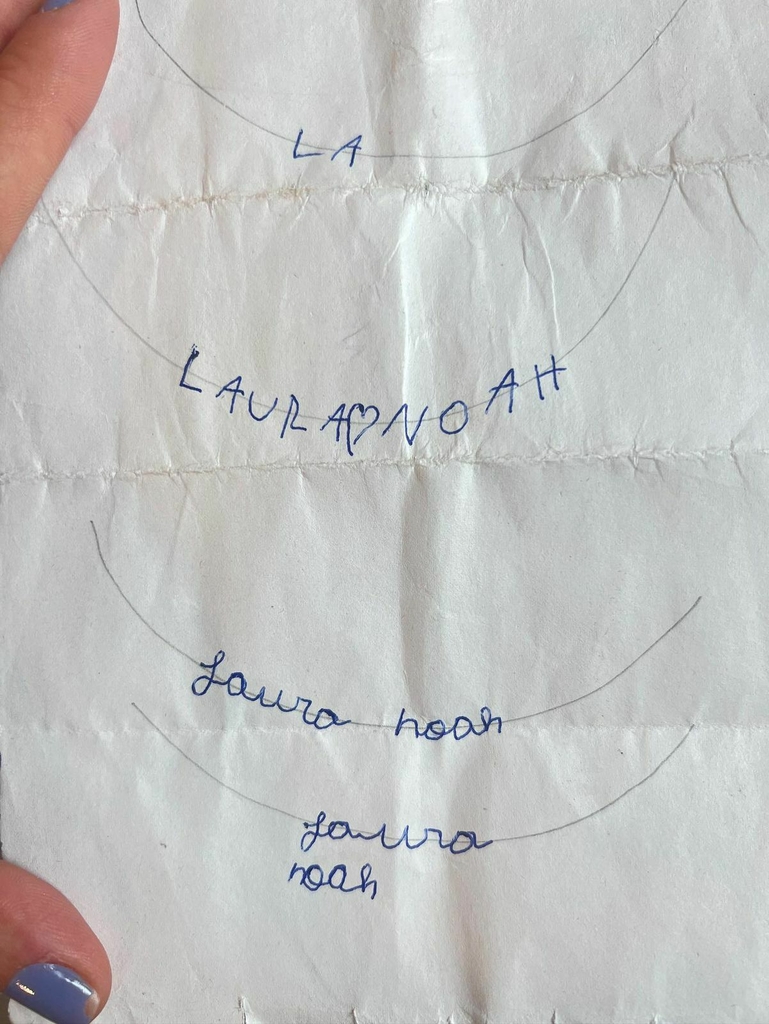 LA
LAURA♡NOAH
Laura noah
Laura
noah